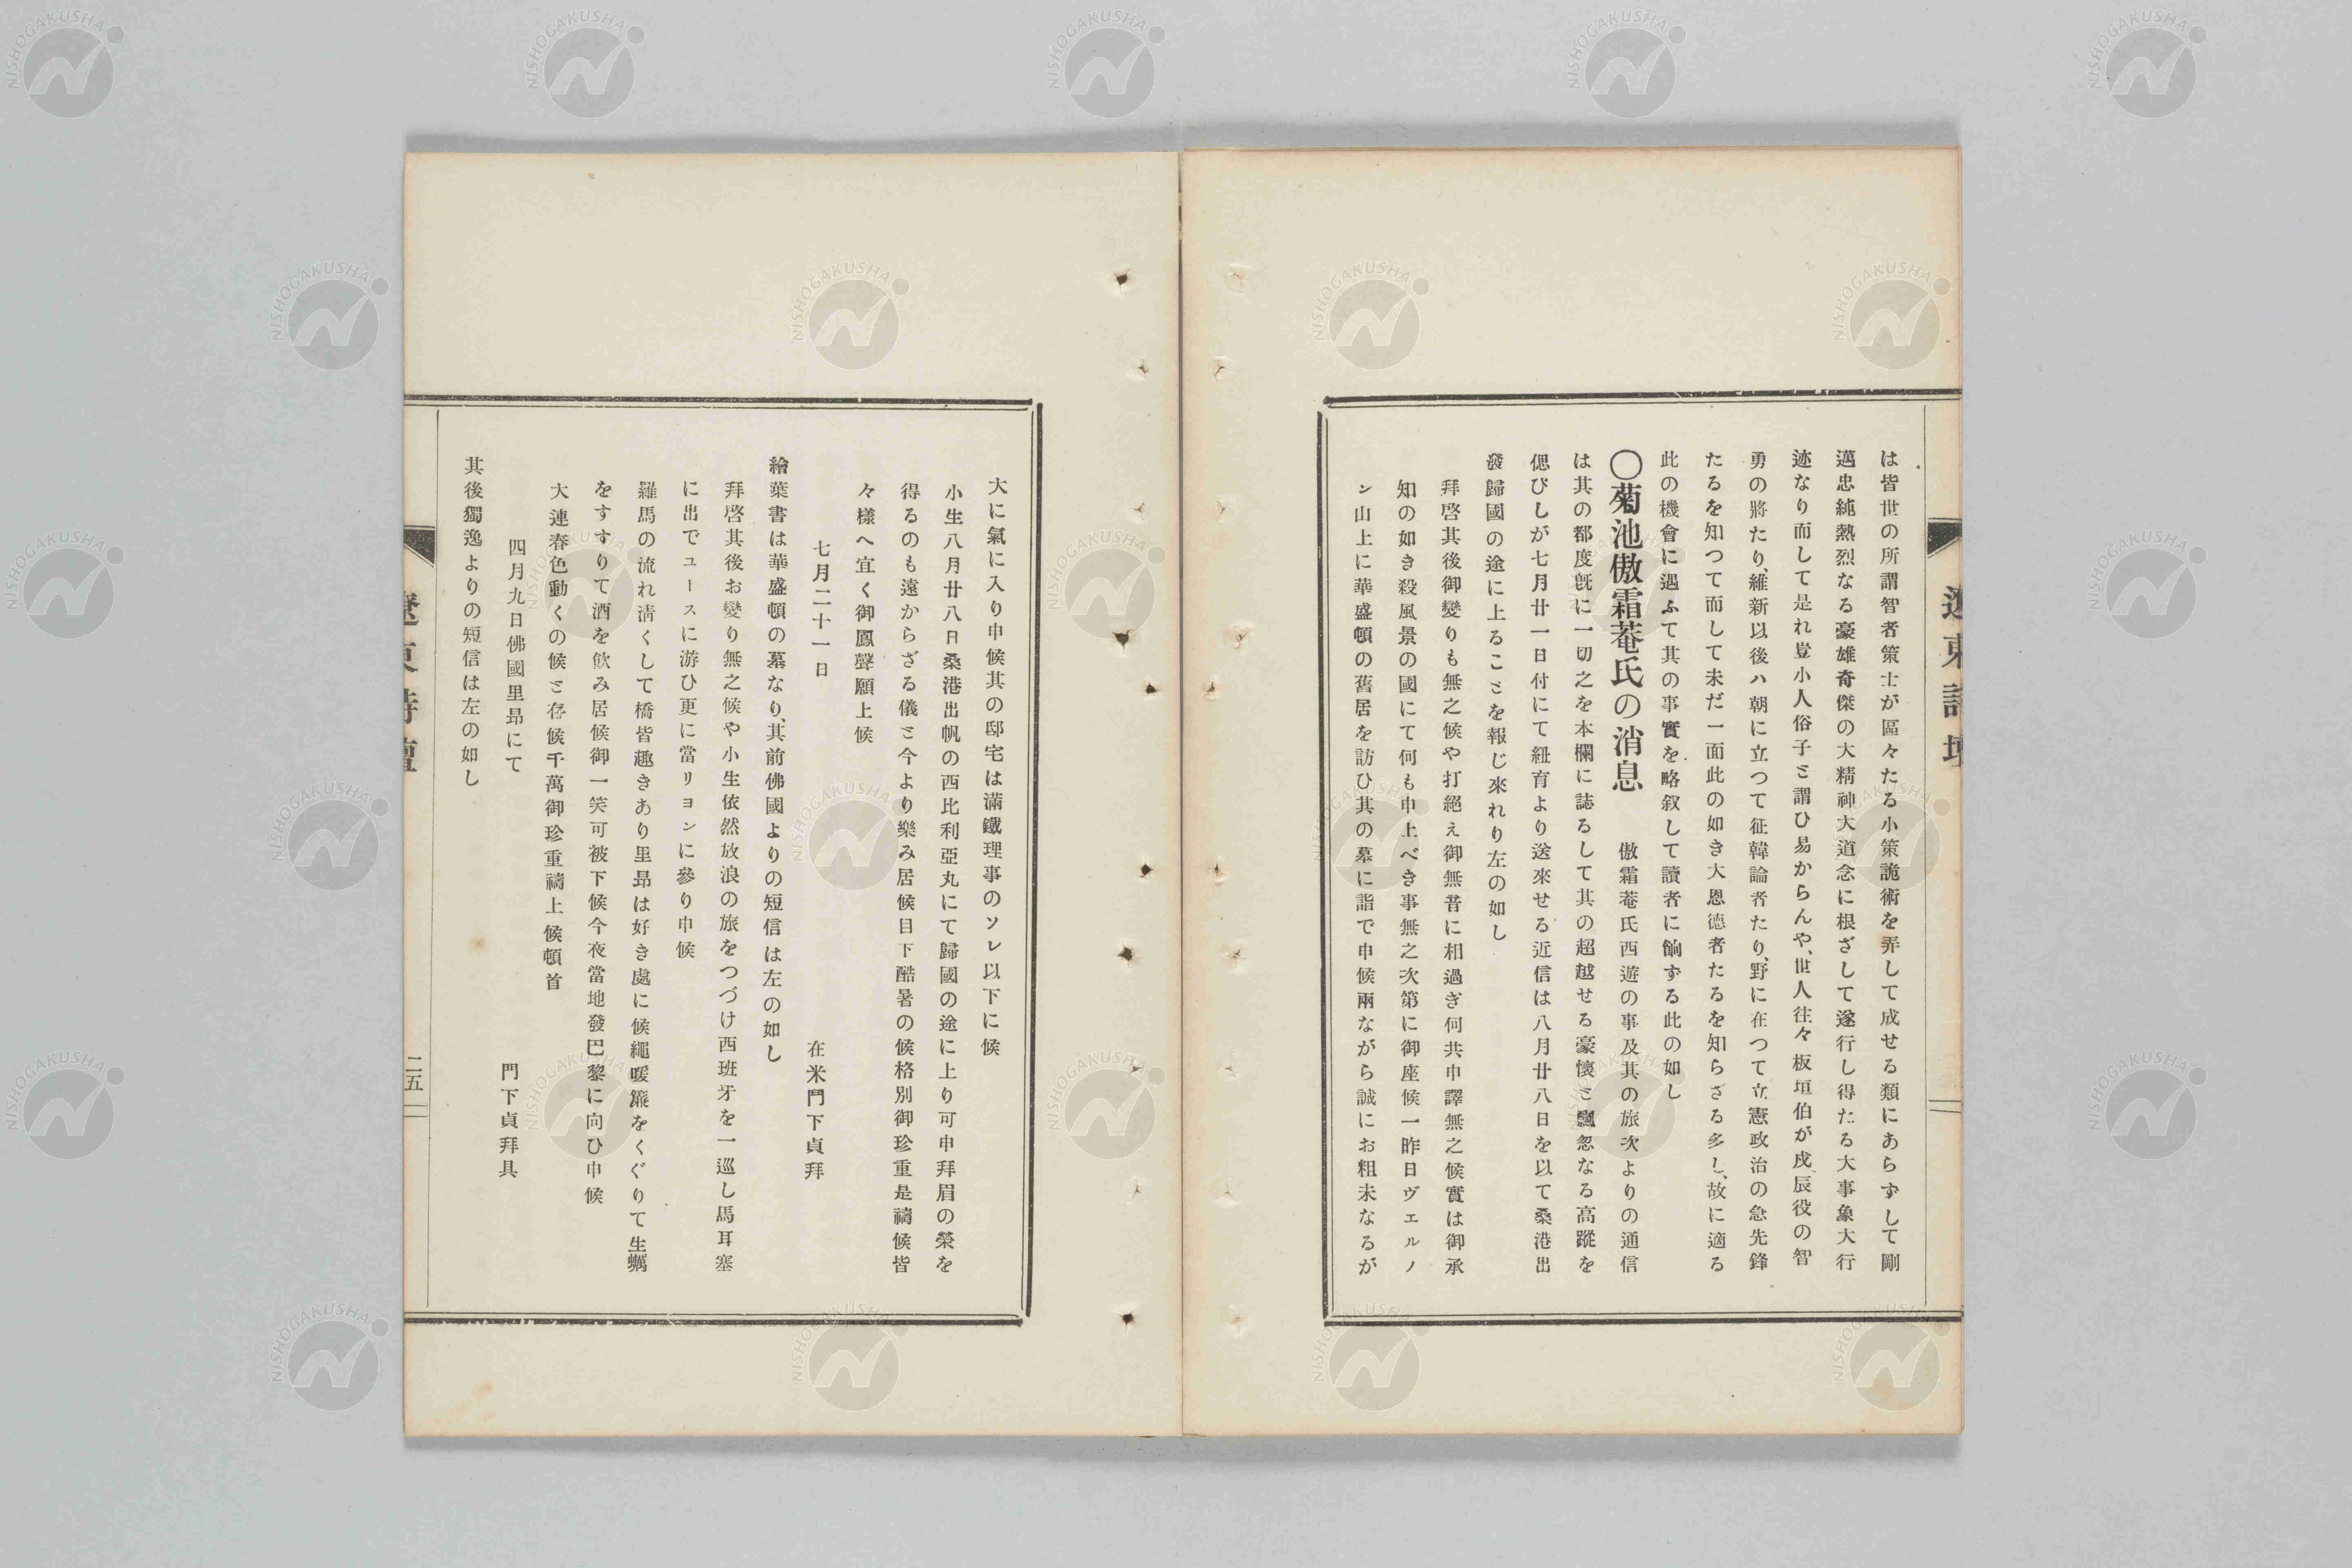 は皆世の所謂智者策士が區々たる小策詭術を弄して成せる類にあらずして剛
邁忠純熱烈なる豪雄奇傑の大精神大道念に根ざして遂行し得たる大事象大行
迹なり而して是れ豈小人俗子と謂ひ易からんや、世人往々板垣伯が戊辰役の智
勇の將たり、維新以後ハ朝に立つて征韓論者たり、野に在つて立憲政治の急先鋒
たるを知つて而して未だ一面此の如き大恩德者たるを知らざる多し、故に適る
此の機會に遇ふて其の事實を略叙して讀者に餉ずる此の如し
〇菊池傲霜菴氏の消息 傲霜菴氏西遊の事及其の旅次よりの通信
は其の都度既に一切之を本欄に誌るして其の超越せる豪懷と飄忽なる高蹤を
偲びしが七月廿一日付にて紐育より送來せる近信は八月廿八日を以て桑港出
發歸國の途に上ることを報じ來れり左の如し
拜啓其後御變りも無之候や打絕え御無音に相過ぎ何共申譯無之候實は御承
知の如き殺風景の國にて何も申上べき事無之次第に御座候一昨日ヴエルノ
ン山上に華盛頓の舊居を訪ひ其の墓に詣で申候兩ながら誠にお粗末なるが
遼東詩壇
大に氣に入り申候其の邸宅は滿鐵理事のソレ以下に候
小生八月廿八日桑港出帆の西比利亞丸にて歸國の途に上り可申拜眉の榮を
得るのも遠からざる儀と今より樂み居候目下酷暑の候格別御珍重是禱候皆
々樣へ宜く御鳳聲願上候
七月二十一日 在米門下貞拜
繪葉書は華盛頓の墓なり、其前佛國よりの短信は左の如し
拜啓其後お變り無之候や小生依然放浪の旅をつづけ西班牙を一巡し馬耳塞
に出でユースに游ひ更に當リヨンに參り申候
羅馬の流れ淸くして橋皆趣きあり里昂は好き處に候繩暖簾をくぐりて生蠣
をすすりて酒を飮み居候御一笑可被下候今夜當地發巴黎に向ひ申候
大連春色動くの候と存候千萬御珍重禱上候頓首
四月九日佛國里昂にて 門下貞拜具
其後獨逸よりの短信は左の如し
遼東詩壇 二五